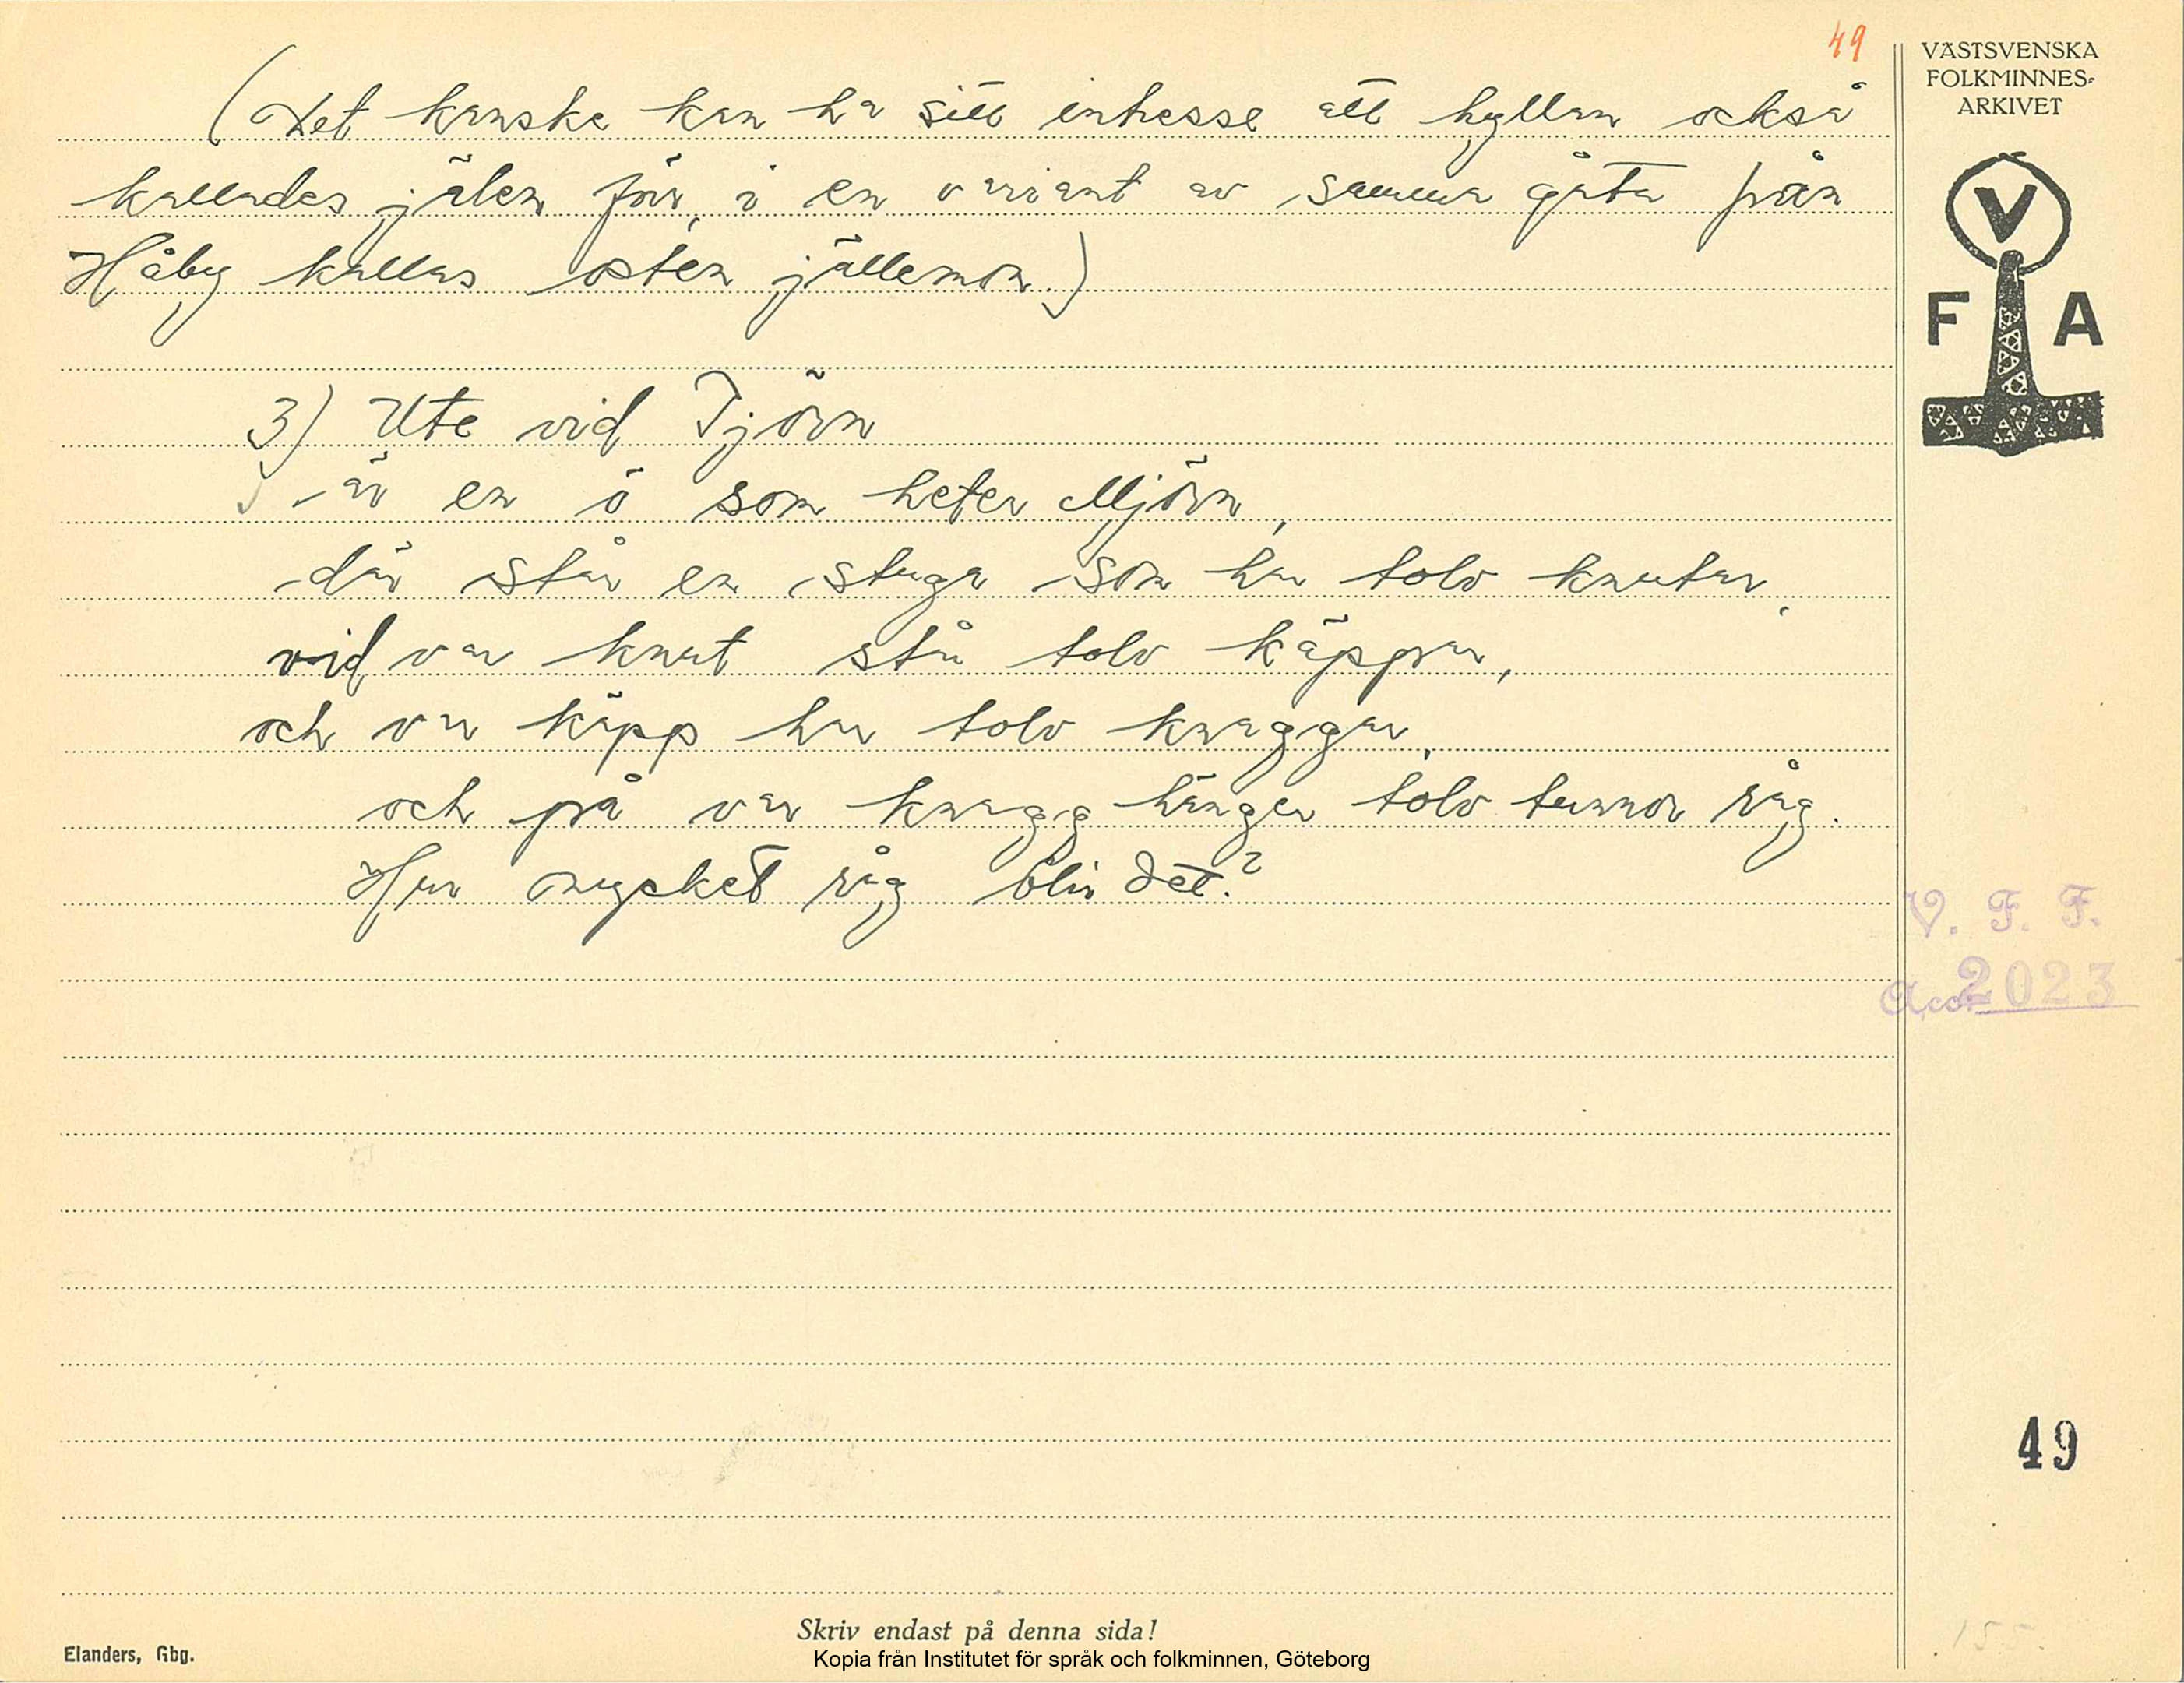 49
(Det kanske kan ha sitt intresse att hyllan också
kallades jälen för, i en variant av samma gåta från
Håby kallas osten jällemon.)
3) Ute vid Tjörn
är en ö som heter Mjörn,
där står en stuga som har tolv knutar,
vid var knut står tolv käppar,
och var käpp har tolv knaggar,
och på var knagg hänger tolv tunnor råg.
Hur mycket råg blir det?
VÄSTSVENSKA
FOLKMINNES-
ARKIVET
V
F A
V. F. F.
Acc. 2023
49
155.
Skriv endast på denna sida!
Elanders, Gbg.
Kopia från Institutet för språk och folkminnen, Göteborg